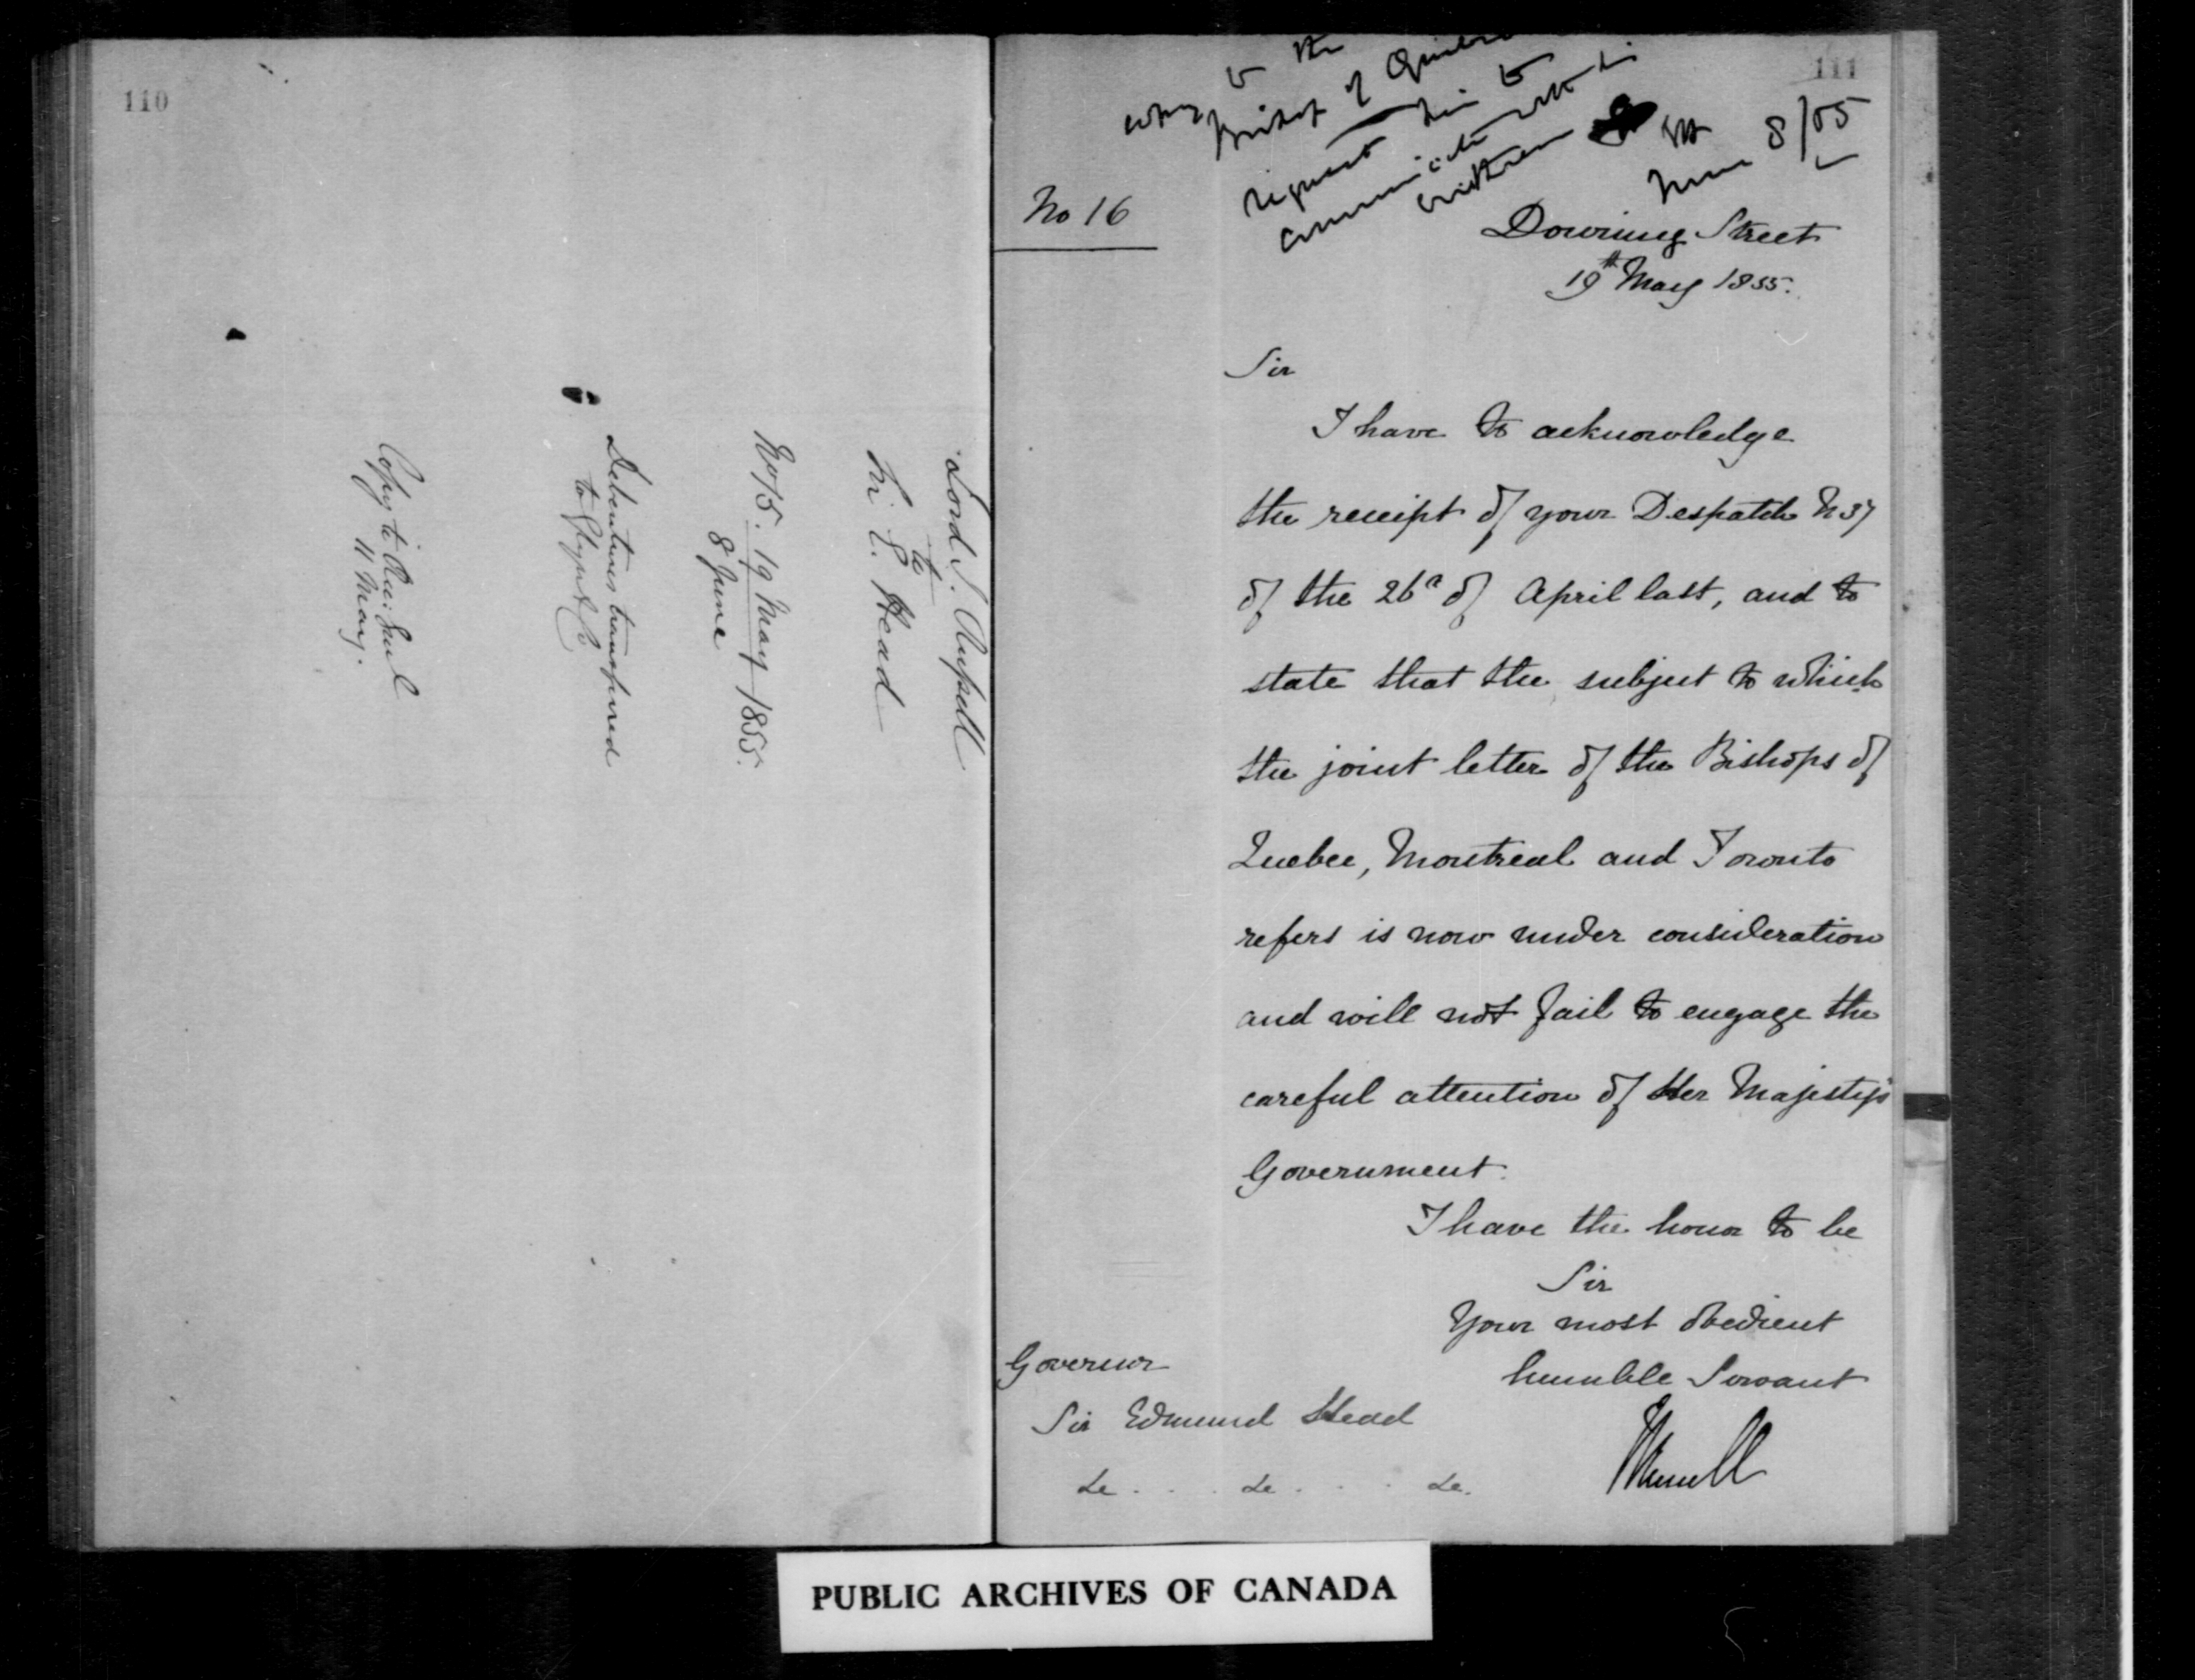 110
Lord J. Russell
to
Sir E. Head
No 15. 19 May 1855.
8 June
Debentures transferred
to
Copy to
11 May.
111
Copy to the
Bishop of Quebec
request him to
communicate with his
brethren
June 8/55
No 16
Downing Street
19th May 1855.
Sir
I have to acknowledge
the receipt of your Despatch N 37
of the 26th of April last, and to
state that the subject to which
the joint letter of the Bishops of
Quebec, Montreal and Toronto
refers is now under consideration
and will not fail to engage the
careful attention of Her Majesty's
Government.
I have the honor to be
Sir
Your most obedient
humble Servant
JRussell
Governor
Sir Edmund Head
&c . . . &c . . . &c.
PUBLIC ARCHIVES OF CANADA